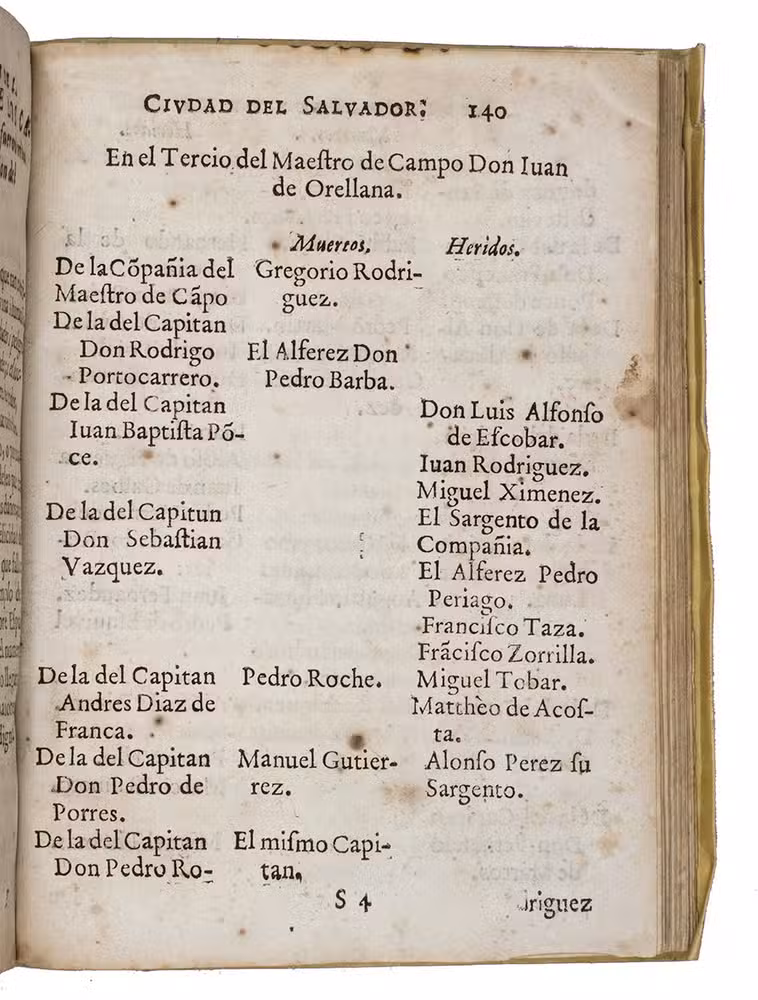 CIVDAD DEL SALVADOR: 140
En el Tercio del Maeſtro de Campo Don Iuan
de Orellana.
Muertos, Heridos.
De la Cõpañia del Gregorio Rodri-
Maeſtro de Cãpo guez.
De la del Capitan
Don Rodrigo El Alferez Don
Portocarrero. Pedro Barba.
De la del Capitan Don Luis Alfonſo
Iuan Baptiſta Põ- de Eſcobar.
ce. Iuan Rodriguez.
Miguel Ximenez.
De la del Capitun El Sargento de la
Don Sebaſtian Compañia.
Vazquez. El Alferez Pedro
Periago.
Franciſco Taza.
Frãciſco Zorrilla.
De la del Capitan Pedro Roche. Miguel Tobar.
Andres Diaz de Mattheo de Acoſ-
Franca. ta.
De la del Capitan Manuel Gutier- Alonſo Perez ſu
Don Pedro de rez. Sargento.
Porres.
De la del Capitan El miſmo Capi-
Don Pedro Ro- tan,
S 4 driguez